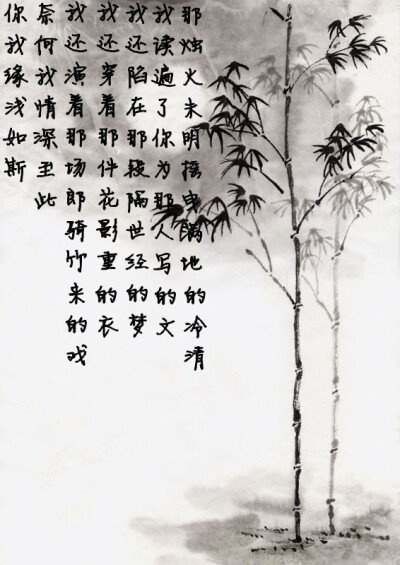 那烛火未明摇曳满地的冷清
我读遍了你为那人写的文
我还陷在那段隔世经的梦
我还穿着那件花影重的衣
我还演着那场郎骑竹来的戏
奈何我情深至此
你我缘浅如斯